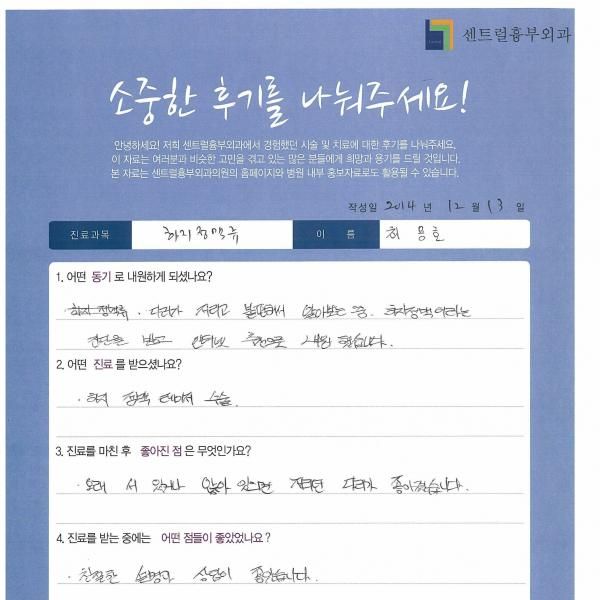 센트럴흉부외과
소중한 후기를 나눠주세요!
안녕하세요! 저희 센트럴흉부외과에서 경험했던 시술 및 치료에 대한 후기를 나눠주세요.
이 자료는 여러분과 비슷한 고민을 겪고 있는 많은 분들에게 희망과 용기를 드릴 것입니다.
본 자료는 센트럴흉부외과의원의 홈페이지와 병원 내부 홍보자료로도 활용될 수 있습니다.
작성일 2014 년 12 월 13 일
진료과목 하지정맥류 이 름 허
1. 어떤 동기 로 내원하게 되셨나요?
다리가 저리고 불편해서 알아보던 중, 하지정맥이라는
진단을 받고 인터넷 추천으로 내원 했습니다.
2. 어떤 진료 를 받으셨나요?
· 하지 정맥 레이저 수술.
3. 진료를 마친 후 좋아진 점 은 무엇인가요?
· 오래 서 있거나 앉아 있으면 저리던 다리가 좋아졌습니다.
4. 진료를 받는 중에는 어떤 점들이 좋았었나요 ?
· 친절한 설명과 상담이 좋았습니다.